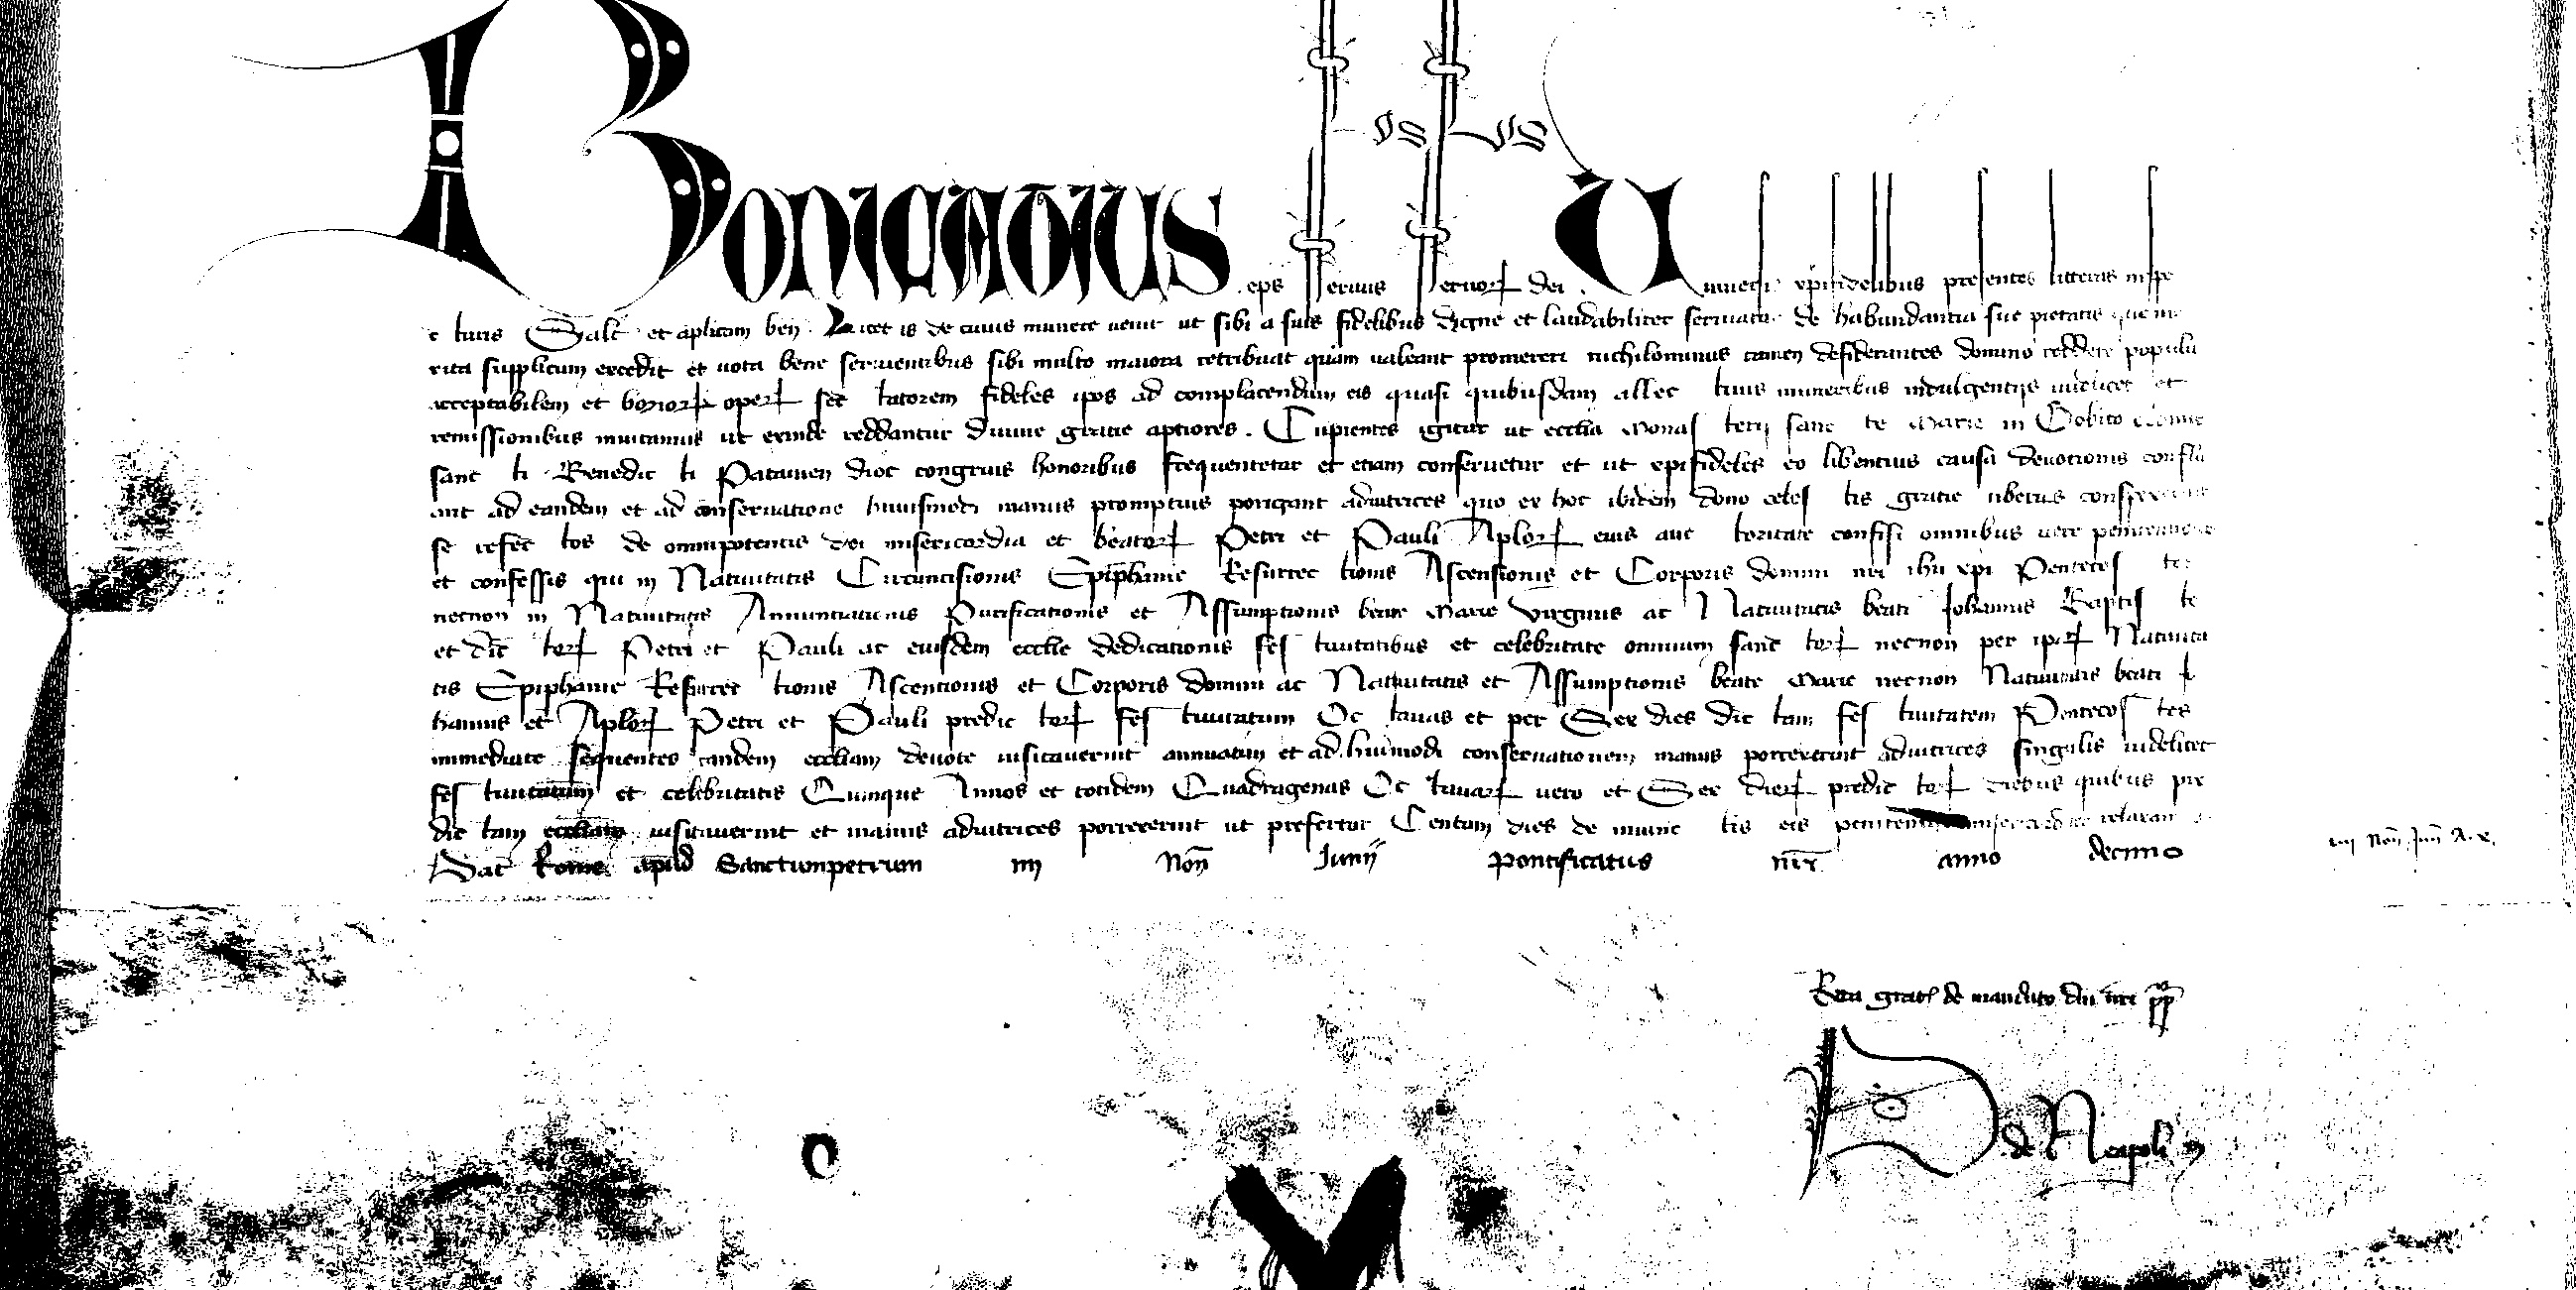 Bonifatius eps servus servorꝝ dei Universis xpifidelibus presentes litteras inspe
c turis Saltꝫ et aplicam ben Licet is de cuius munere venit ut sibi a suis fidelibus digne et laudabiliter serviatur de habundantia sue pietatis que me
rita supplicum excedit et vota bene servientibus sibi multo maiora retribuat quam valeant promereri nichilominus tamen desiderantes domino reddere populū
acceptabilem et bonorꝝ operꝝ sec tatorem fideles ipos ad complacendum eis quasi quibusdam allec tivis muneribus indulgentijs videlicet et
remissionibus invitamus ut exinde reddantur divine gratie aptiores. Cupientes igitur ut ecclia Monas terij sanc te Marie in Gotwico
sanc ti Benedic ti Patavien dioc congruis honoribus frequentetur et etiam conservetur et ut xpifideles eo libentius causa devotionis conflu
ant ad eandem et ad conservatione huiusmodi manus promptius porrigant adiutrices quo ex hoc ibidem dono celes tis gratie uberius conspexerint
se refec tos de omnipotentis dei misericordia et beatorꝝ Petri et Pauli Aplorꝝ eius auc toritate confisi omnibus vere penitentibus
et confessis qui in Nativitatis Circuncisionis Epiphanie Resurrec tionis Ascensionis et Corporis domini nri ihu xpi Penteces tes
necnon in Nativitatis Annuntiationis Purificationis et Assumptionis beate Marie virginis ac Nativitatis beati Johannis Baptis te
et dic torꝝ Petri et Pauli ac eiusdem ecclie dedicationis fes tivitatibus et celebritate omnium sanc torꝝ necnon per ipsarꝝ Nativita
tis Epiphanie Resurrec tionis Ascentionis et Corporis domini ac Nativitatis et Assumptionis beate Marie necnon Nativitatis beati Jo
hannis et Aplorꝝ Petri et Pauli predic torꝝ fes tivitatum Oc tavas et per Sex dies dic tam fes tivitatem Pentecos tes
immediate sequentes eandem eccliam devote visitaverint annuatim et ad huiusmodi conservationem manus porrexerint adiutrices singulis videlicet
fes tivitatum et celebritatis Quinque Annos et totidem Quadragenas Oc tavarꝝ vero et Sex dierꝝ predic torꝝ diebus quibus pre
dic tam eccliam visitaverint et manus adiutrices porrexerint ut prefertur Centum dies de iniunc tis eis penitentijs misericorditer relaxam
Dat Rome apud Sanctumpetrum iiij Non Junij Pontificatus nri anno decimo
iiij Non Jun A. x.
de mandato dni nri pp
de Neapoli